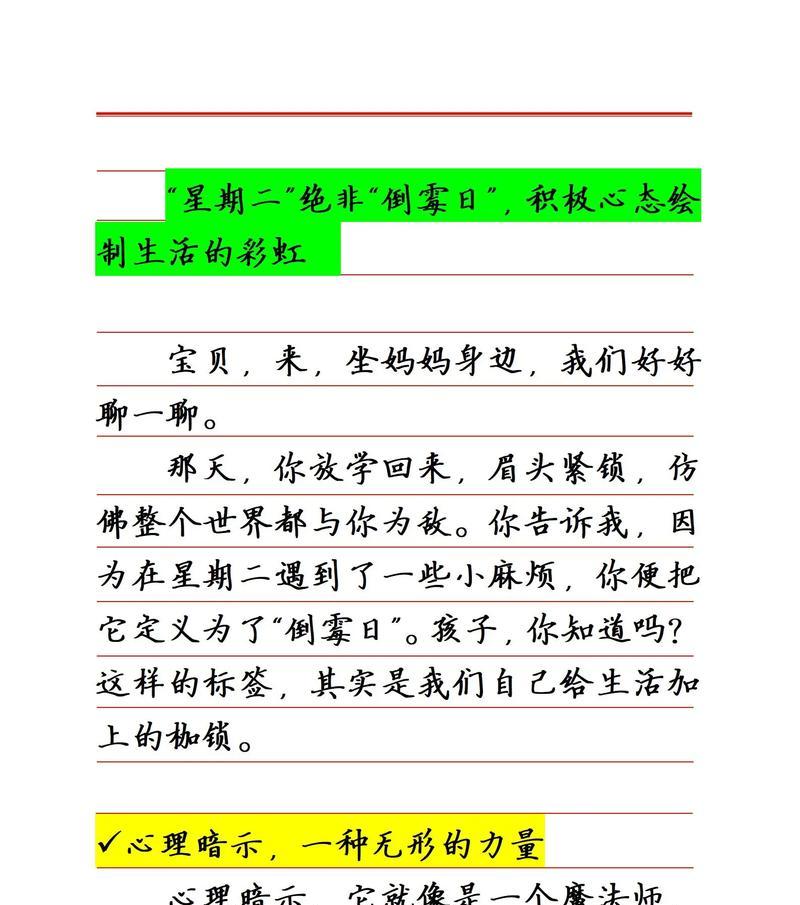 “星期二”绝非“倒霉日”，积极心态绘
制生活的彩虹
宝贝，来，坐妈妈身边，我们好好
聊一聊。
那天，你放学回来，眉头紧锁，仿
佛整个世界都与你为敌。你告诉我，因
为在星期二遇到了一些小麻烦，你便把
它定义为了“倒霉日”。孩子，你知道吗？
这样的标签，其实是我们自己给生活加
上的枷锁。
✓心理暗示，一种无形的力量
心理暗示，它就像是一个魔法师，